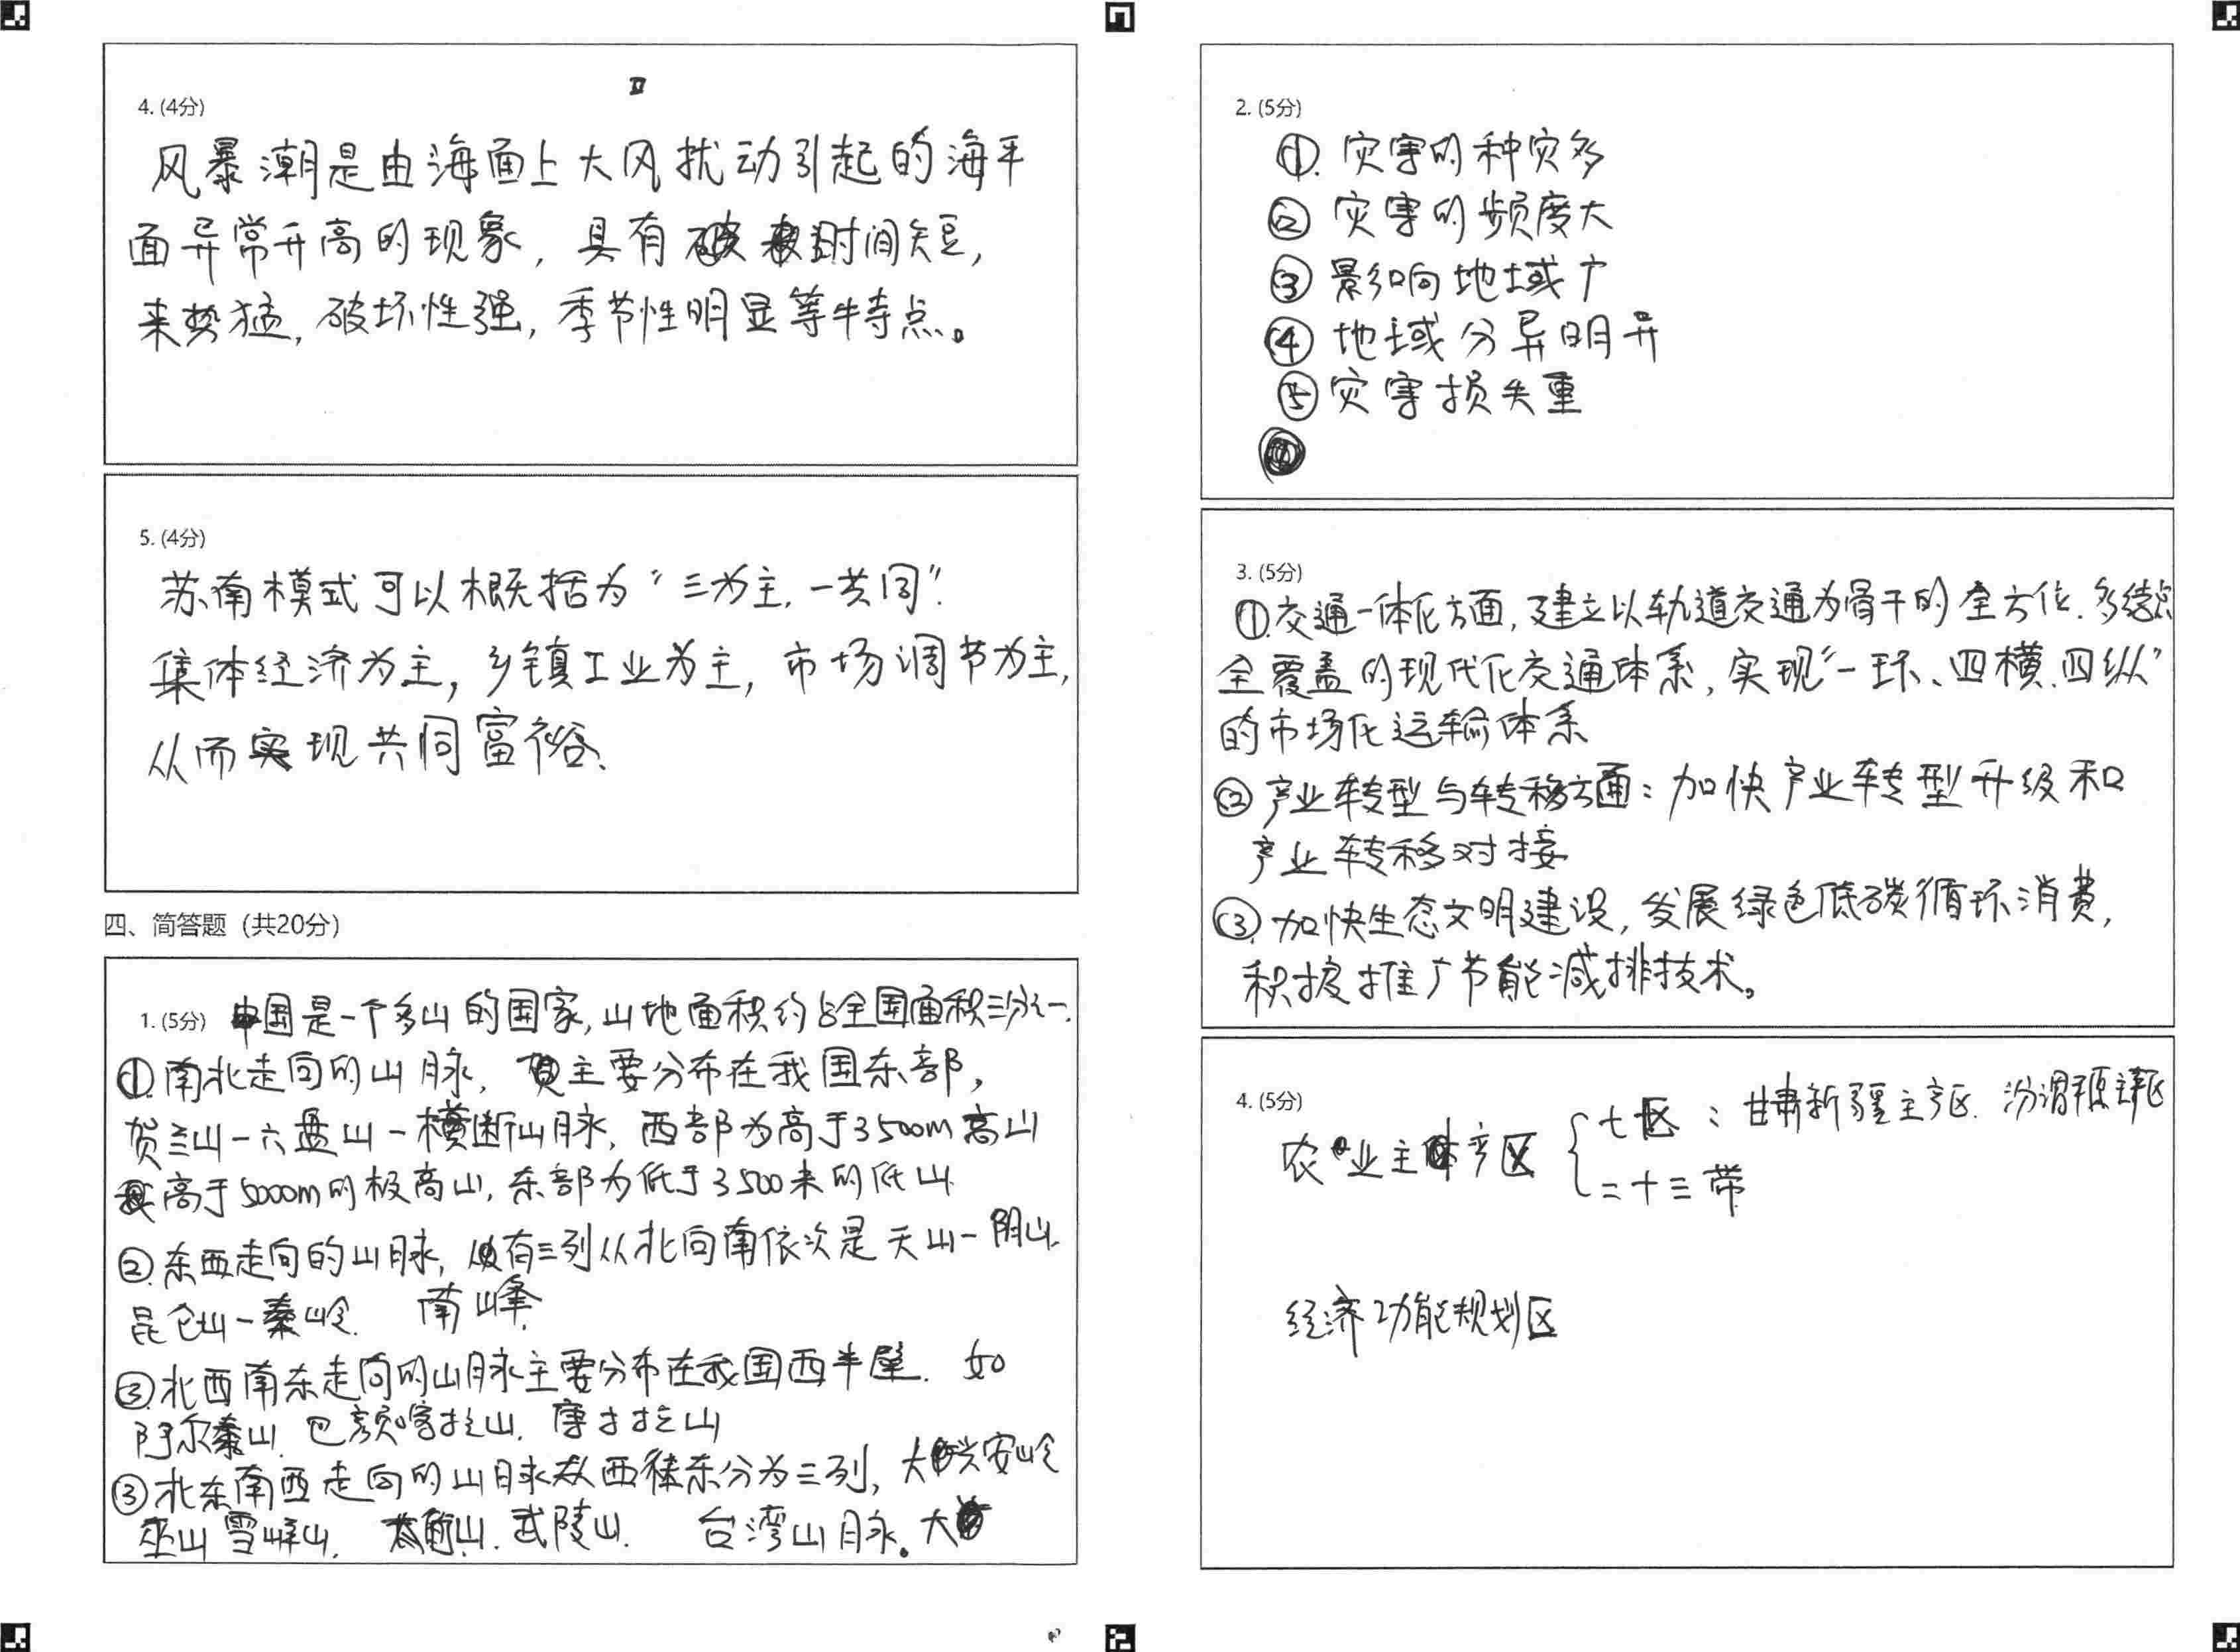 4. (4分)
风暴潮是由海面上大风扰动引起的海平
面异常升高的现象，具有时间短，
来势猛，破坏性强，季节性明显等特点。
5. (4分)
苏南模式可以概括为“三为主，一共同”.
集体经济为主，乡镇工业为主，市场调节为主，
从而实现共同富裕、
四、简答题（共20分）
1. (5分) 中国是一个多山的国家，山地面积约占全国面积三分之一.
①南北走向的山脉，主要分布在我国东部，
贺兰山-六盘山-横断山脉，西部为高于3500m高山
高于5000m的极高山，东部为低于3500米的低山
②.东西走向的山脉，有三列从北向南依次是天山-阴山.
昆仑山-秦岭. 南峰
③北西南东走向的山脉主要分布在我国西半壁. 如
阿尔泰山. 巴颜喀拉山. 唐古拉山
③北东南西走向的山脉从西往东分为三列，大兴安岭
巫山雪峰山. 太行山. 武陵山. 台湾山脉。大
2. (5分)
①. 灾害的种灾多
② 灾害的频度大
③ 影响地域广
④ 地域分异明异
⑤ 灾害损失重
3. (5分)
①交通一体化方面，建立以轨道交通为骨干的全方位、多结点
全覆盖的现代化交通体系，实现“一环、四横、四纵”
的市场化运输体系
② 产业转型与转移方面：加快产业转型升级和
产业转移对接
③ 加快生态文明建设，发展绿色低碳循环消费，
积极推广节能减排技术。
4. (5分)
农业主产区 七区：甘肃新疆主产区. 汾渭平原主产区
二十三带
经济功能规划区